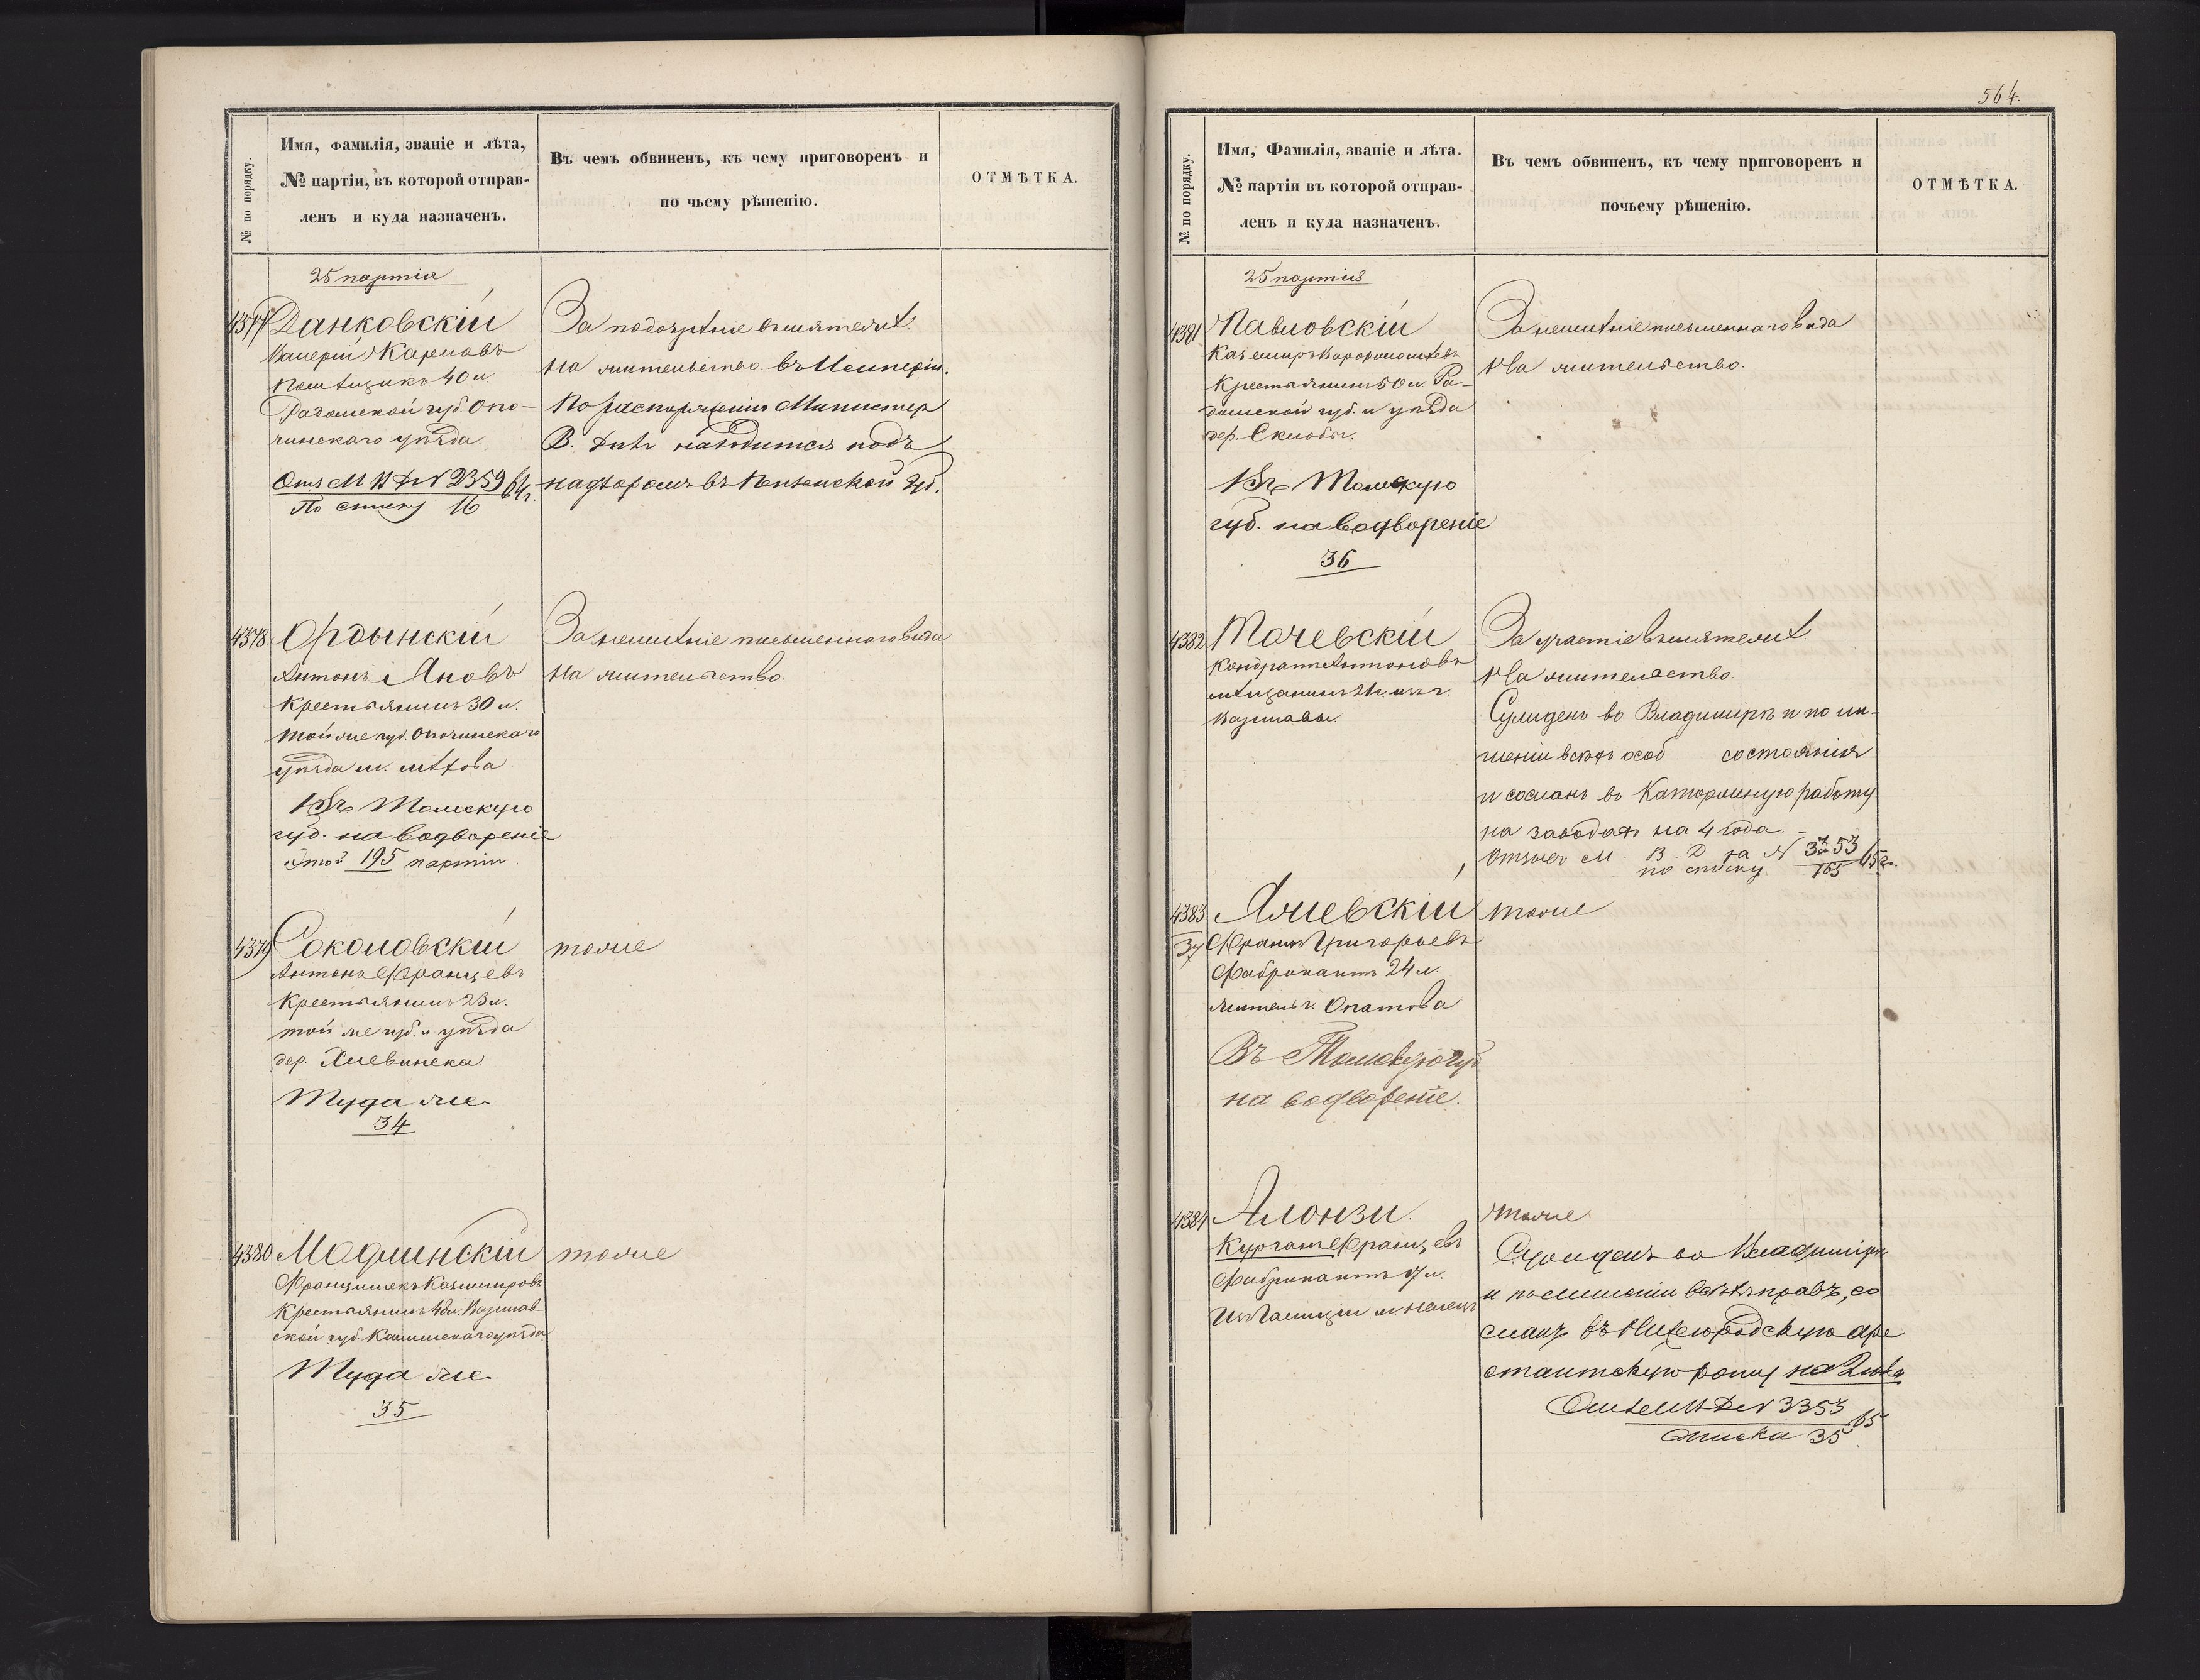 № по порядку.
Имя, фамилія, званіе и лѣта,
№ партіи, въ которой отправ-
ленъ и куда назначенъ.
Въ чемъ обвиненъ, къ чему приговоренъ и
по чьему рѣшенію.
ОТМѢТКА.
25 партія
4377 Данковскій
Валерій Карловъ
Помѣщикъ 40 л.
Радомской губ. Опо-
чинскаго уѣзда
Отз М В Д № 2359 64 г.
По списку 16
За подозрѣніе въ мятежѣ.
На жительство въ Имперію.
По распоряженію Министер
В. Дѣлъ находится подъ
надзоромъ въ Пензенской губ.
4378 Ордынскій
Антонъ Яновъ
Крестьянинъ 30 л.
той же губ. Опочинскаго
уѣзда м.
Въ Томскую
губ. на водвореніе
195 партіи.
За неимѣніе письменнаго вида
На жительство.
4379 Соколовскій
Антонъ Францевъ
Крестьянинъ 23 л.
той же губ. и уѣзда
дер. Хлевинска
Туда же
34
тоже
4380 Модлинскій
Францишекъ Казимировъ
Крестьянинъ 48 л. Варшав-
ской губ. Калишскаго уѣзда.
Туда же
35
тоже
564.
№ по порядку.
Имя, Фамилія, званіе и лѣта.
№ партіи въ которой отправ-
ленъ и куда назначенъ.
Въ чемъ обвиненъ, къ чему приговоренъ и
почьему рѣшенію.
ОТМѢТКА.
25 партія
4381 Павловскій
Казимиръ Варфоломѣевъ
Крестьянинъ 50 л. Ра-
домской губ. и уѣзда
дер. Склобы.
Въ Томскую
губ. на водвореніе
36
За неимѣніе письменнаго вида
На жительство.
4382 Точевскій
Кондратъ Антоновъ
мѣщанинъ 21 л. изъ г.
Варшавы.
За участіе въ мятежѣ.
На жительство.
Сужденъ во Владимірѣ и по ли-
шеніи всѣхъ особ состоянія
и сосланъ въ Каторжную работу
на заводахъ на 4 года.
Отзывъ М. В. Д за № 3353 65 г.
по списку 165
4383 Ялиевскій
37
Францъ Григорьевъ
Фабрикантъ 24 л.
житель г. Опатова
Въ Томскую губ
на водвореніе.
тоже
4384 Алонзи.
Курганъ Францевъ
Фабрикантъ 17 л.
Изъ Галиціи м.
тоже.
Сужденъ во Владимірѣ
и по лишеніи всѣхъ правъ, со
сланъ въ Нижегородскую аре
стантскую роту на 2 года
Отз М В Д № 3353 65
списка 35